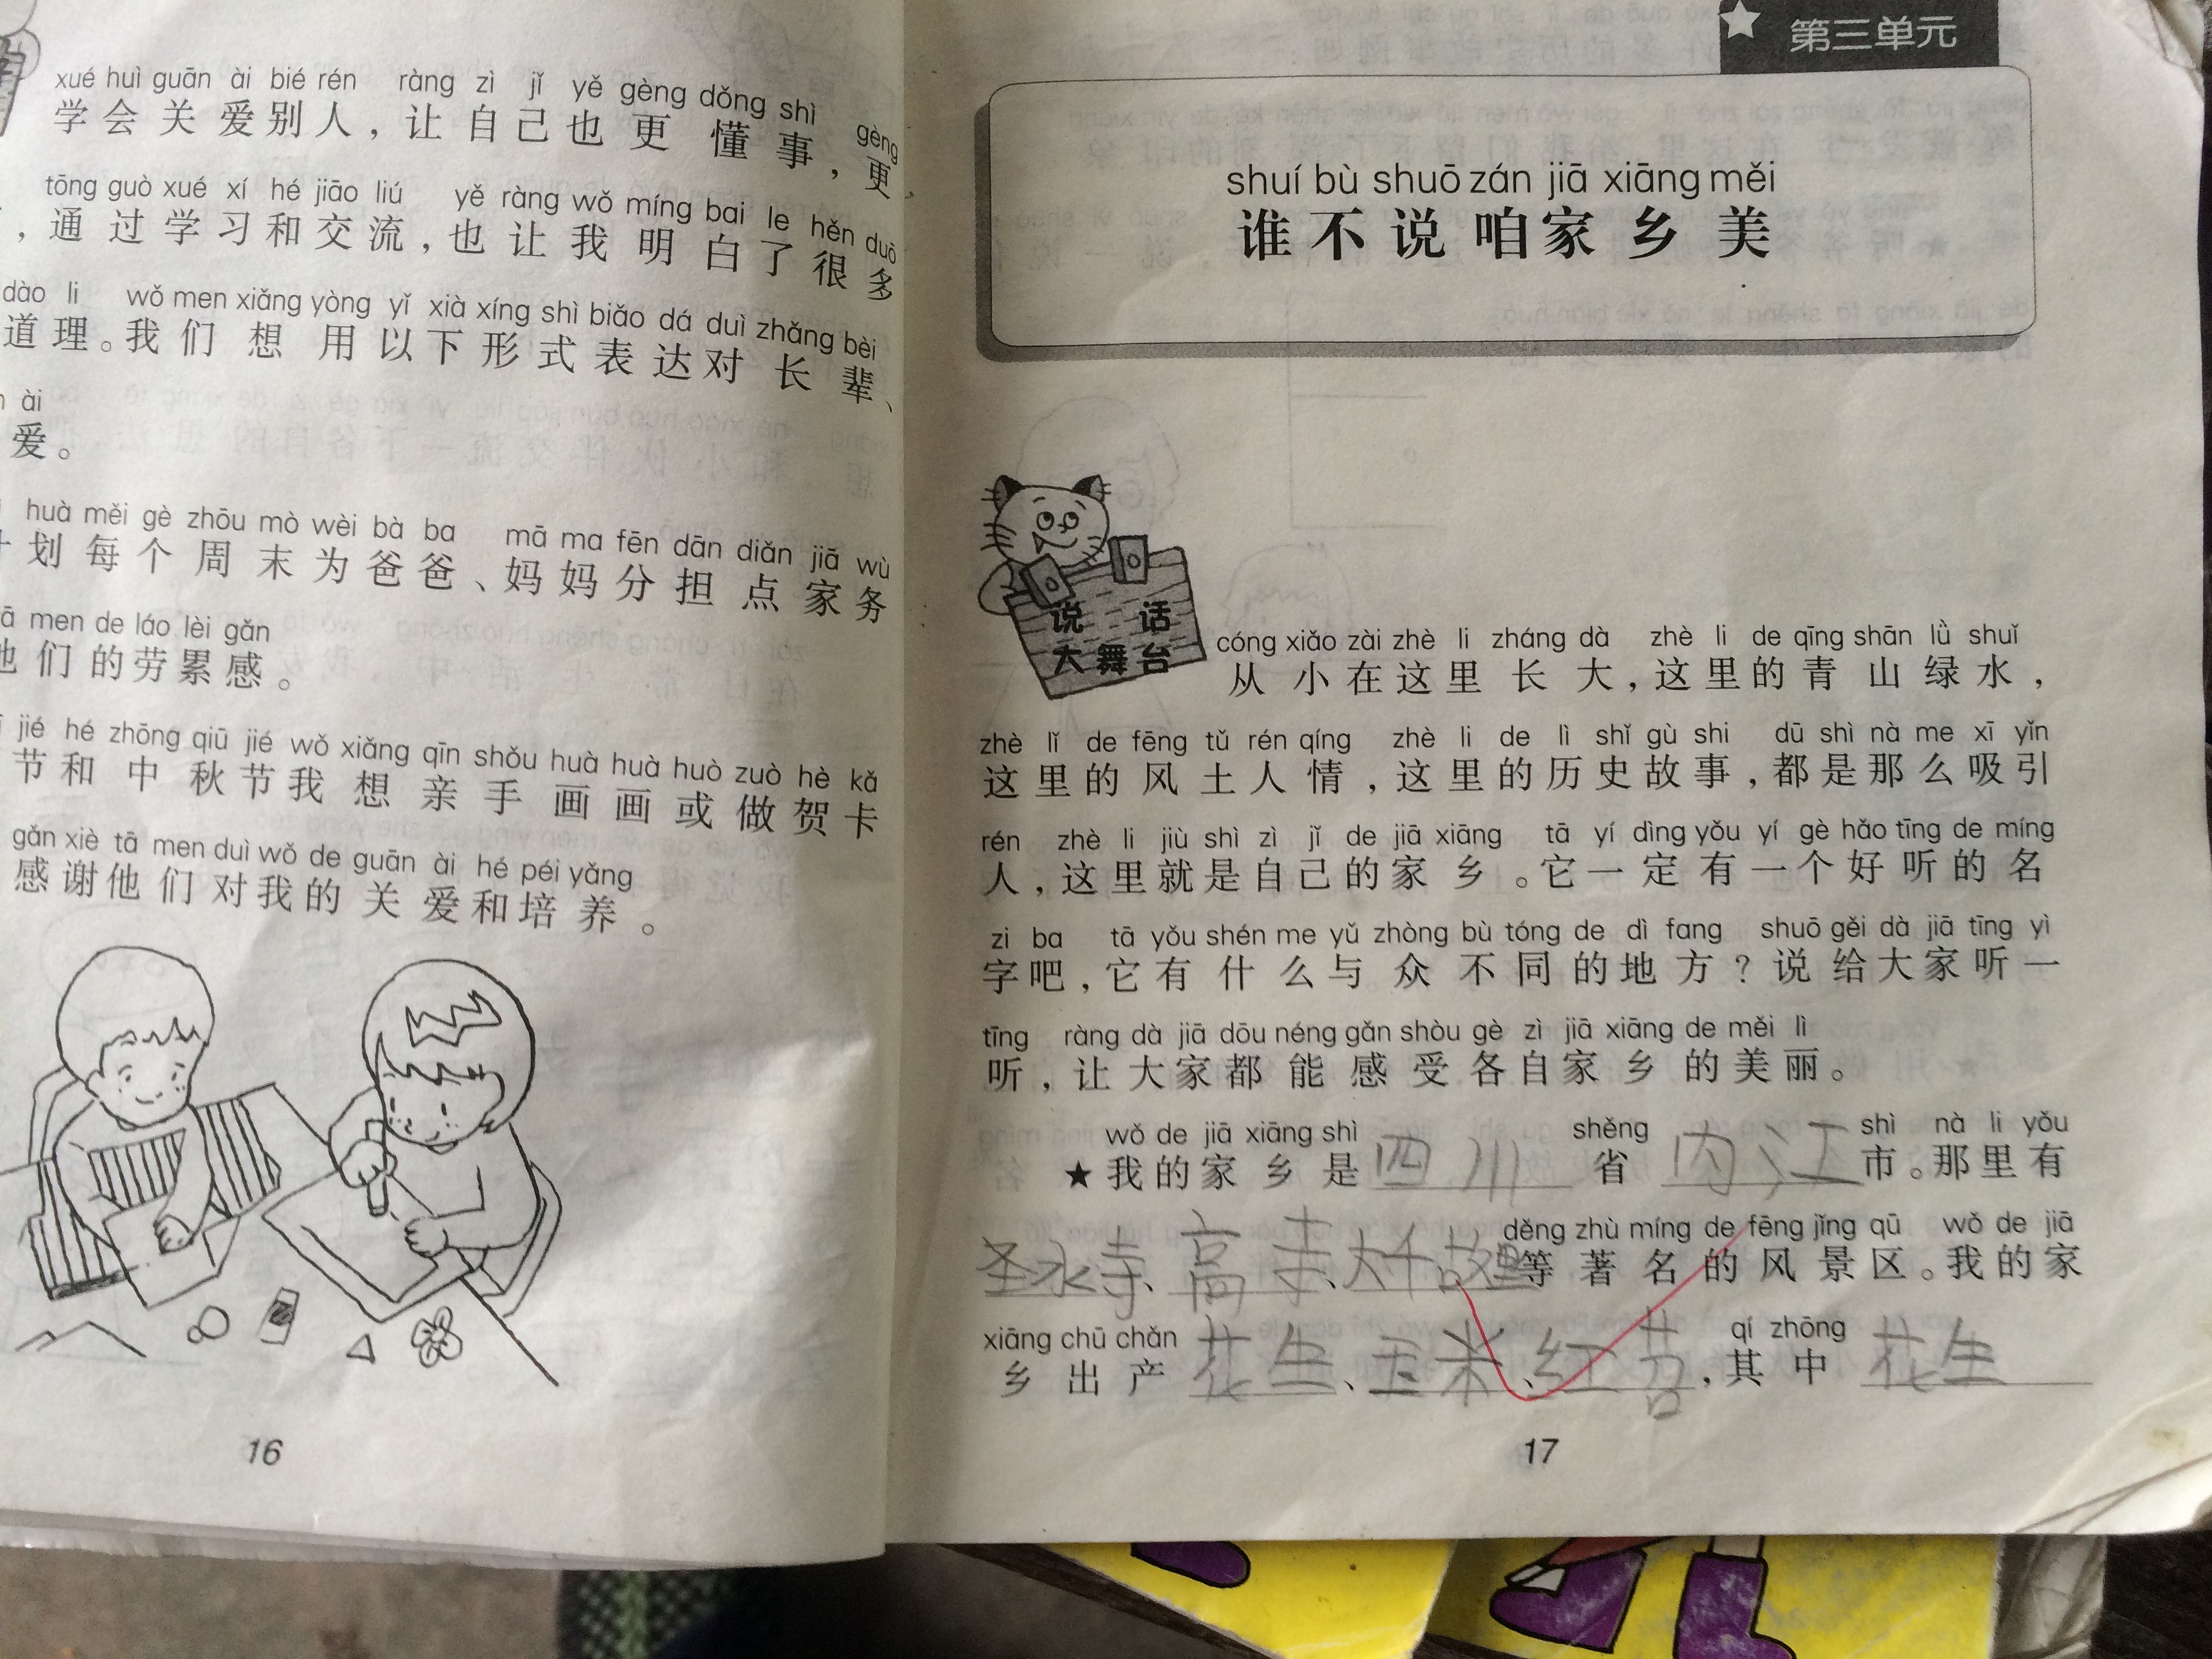 xué huì guān ài bié rén ràng zì jǐ yě gèng dǒng shì gèng
学会关爱别人，让自己也更懂事，更
tōng guò xué xí hé jiāo liú yě ràng wǒ míng bai le hěn duō
，通过学习和交流，也让我明白了很多
dào li wǒ men xiǎng yòng yǐ xià xíng shì biǎo dá duì zhǎng bèi
道理。我们想用以下形式表达对长辈、
ài
爱。
huà měi gè zhōu mò wèi bà ba mā ma fēn dān diǎn jiā wù
划每个周末为爸爸、妈妈分担点家务
men de láo lèi gǎn
他们的劳累感。
jié hé zhōng qiū jié wǒ xiǎng qīn shǒu huà huà huò zuò hè kǎ
节和中秋节我想亲手画画或做贺卡
gǎn xiè tā men duì wǒ de guān ài hé péi yǎng
感谢他们对我的关爱和培养。
16
第三单元
shuí bù shuō zán jiā xiāng měi
谁不说咱家乡美
说话
大舞台
cóng xiǎo zài zhè li zháng dà zhè li de qīng shān lǜ shuǐ
从小在这里长大，这里的青山绿水，
zhè lǐ de fēng tǔ rén qíng zhè li de lì shǐ gù shi dū shì nà me xī yǐn
这里的风土人情，这里的历史故事，都是那么吸引
rén zhè li jiù shì zì jǐ de jiā xiāng tā yí dìng yǒu yí gè hǎo tīng de míng
人，这里就是自己的家乡。它一定有一个好听的名
zi ba tā yǒu shén me yǔ zhòng bù tóng de dì fang shuō gěi dà jiā tīng yì
字吧，它有什么与众不同的地方？说给大家听一
tīng ràng dà jiā dōu néng gǎn shòu gè zì jiā xiāng de měi lì
听，让大家都能感受各自家乡的美丽。
wǒ de jiā xiāng shì shěng shì nà li yǒu
★我的家乡是四川省内江市。那里有
děng zhù míng de fēng jǐng qū wǒ de jiā
圣水寺、高寺、大千故里等著名的风景区。我的家
xiāng chū chǎn qí zhōng
乡出产花生、玉米、红苕，其中花生
17